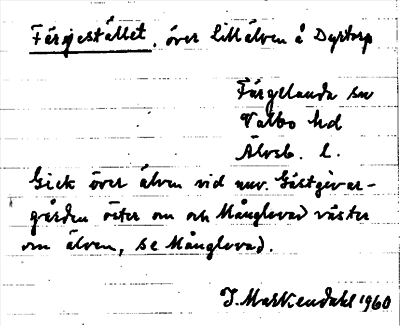 Färjestället, över lillälven å Dyrtorp
Färgelanda sn
Valbo hd
Älvsb. l.
Gick över älven vid nuv. Gästgivar-
gården öster om och Månglovad väster
om älven, se Månglovad.
J. Markendahl 1960